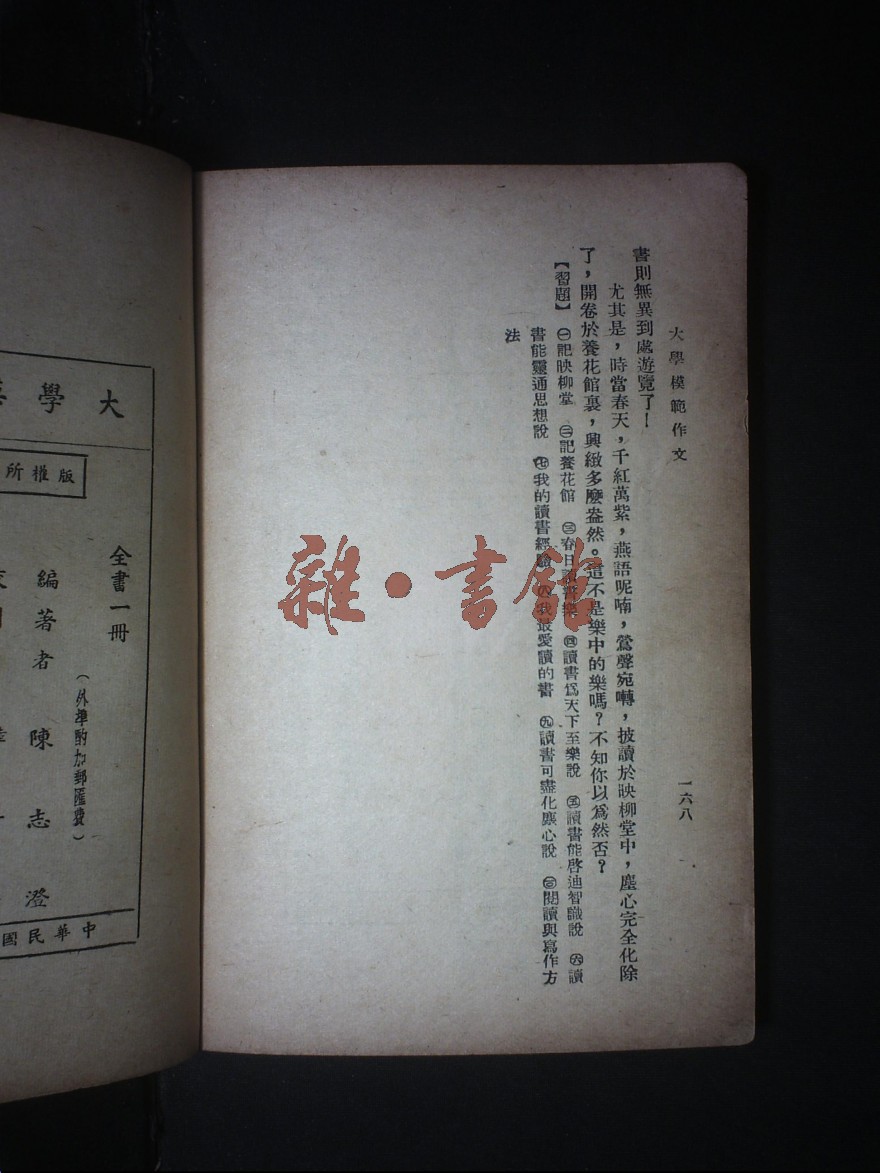 大學模範作文
一六八
書則無異到處遊覽了！
尤其是，時當春天，千紅萬紫，燕語呢喃，鶯聲宛囀，披讀於映柳堂中，塵心完全化除
了，開卷於養花館裏，興緻多麼盎然。這不是樂中的樂嗎？不知你以爲然否？
【習題】 ㊀記映柳堂 ㊁記養花館 ㊂春日讀書樂 ㊃讀書爲天下至樂說 ㊄讀書能啓迪智識說 ㊅讀
書能靈通思想說 ㊆我的讀書經驗 ㊇我最愛讀的書 ㊈讀書可盡化塵心說 ㊉閱讀與寫作方
法
雜·書館
大學
版權所
全書一冊
（外埠酌加郵匯費）
編著者 陳志澄
中華民國